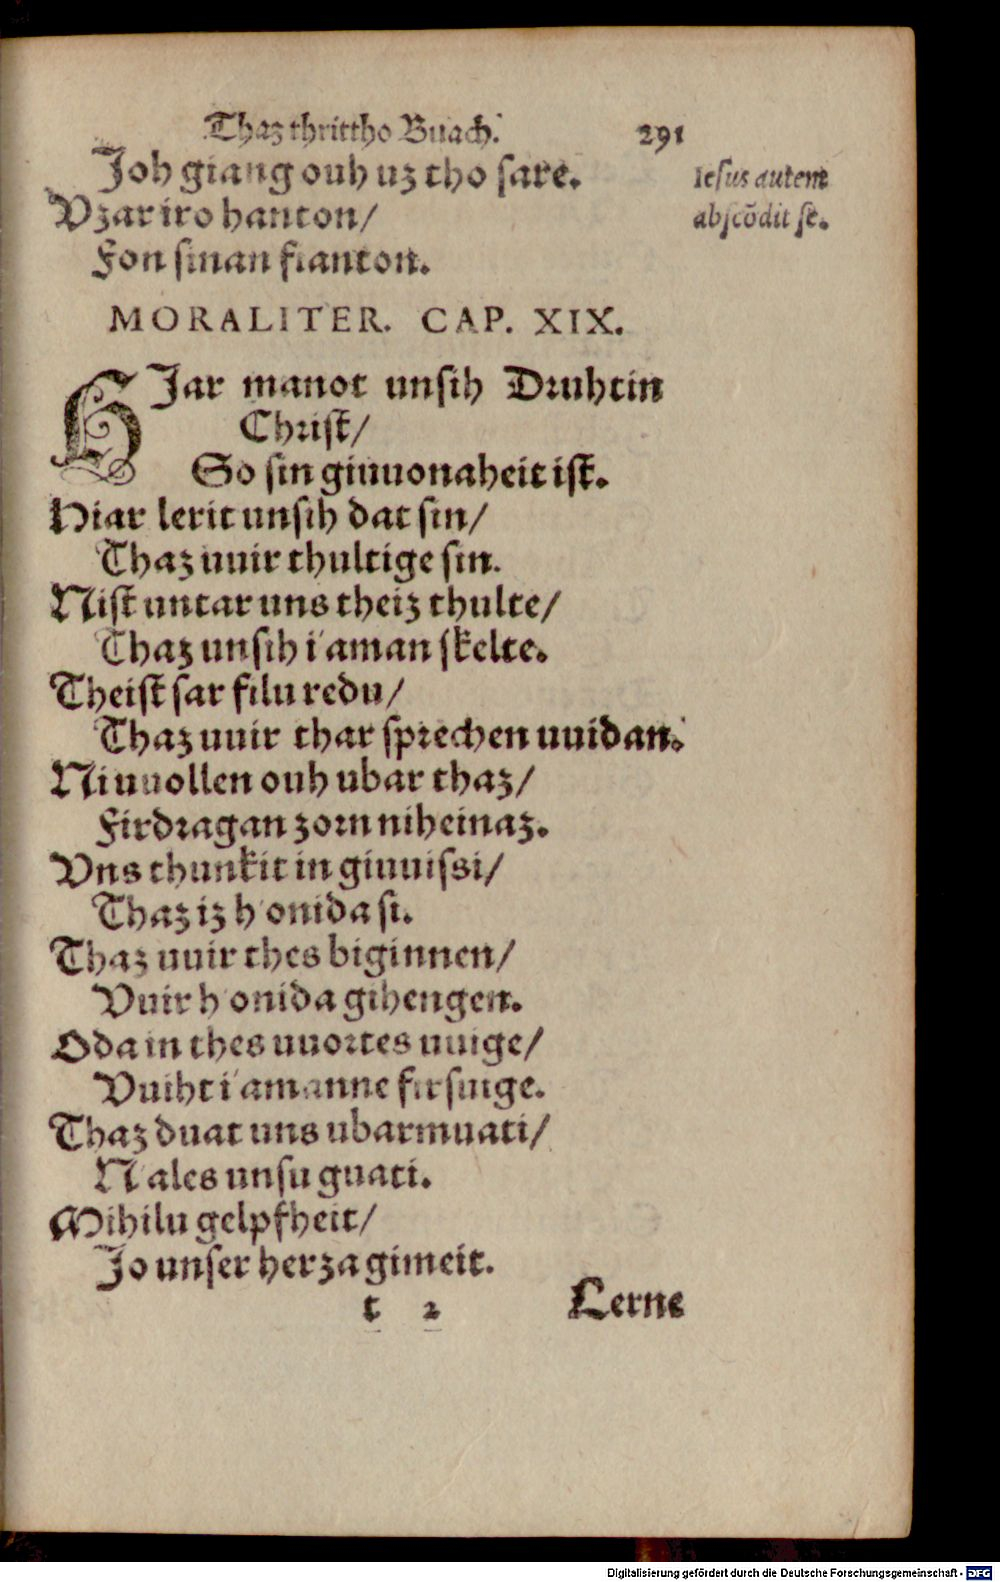 Thaz thrittho Buach. 291
Joh giang ouh uz tho sare.
Iesus autem
abscõdit se.
Vzar iro hanton/
Fon sinan fianton.
MORALITER. CAP. XIX.
HJar manot unsih Druhtin
Christ/
So sin giuuonaheit ist.
Hiar lerit unsih dat sin/
Thaz uuir thultige sin.
Nist untar uns theiz thulte/
Thaz unsih i'aman skelte.
Theist sar filu redu/
Thaz uuir thar sprechen uuidan.
Ni uuollen ouh ubar thaz/
Firdragan zorn niheinaz.
Vns thunkit in giuuissi/
Thaz iz h'onida si.
Thaz uuir thes biginnen/
Vuir h'onida gihengen.
Oda in thes uuortes uuige/
Vuiht i'amanne firsuige.
Thaz duat uns ubarmuati/
N'ales unsu guati.
Mihilu gelpfheit/
Jo unser herza gimeit.
t 2 Lerne
Digitalisierung gefördert durch die Deutsche Forschungsgemeinschaft - DFG